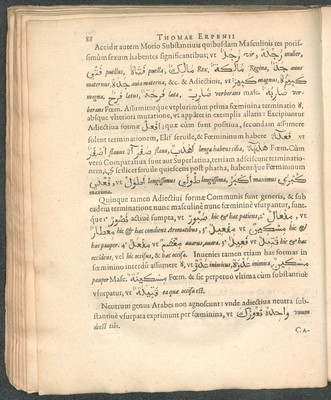 88 THOMAE ERPENII
Accidit autem Motio Substantiuis quibusdam Masculinis res potis-
simùm sexum habentes significantibus; vt رَجُلٌ vir رَجُلَةٌ mulier,
فَتًى puellus, فَتَاةٌ puella, مَالِكٌ Rex, مَالِكَةٌ Regina, جَدٌّ auus
maternus, جَدَّةٌ auia materna, &c. & Adiectiuis, vt كَبِيرٌ magnus, كَبِيرَةٌ
magna, فَرِحٌ latus فَرِحَةٌ lata, ضَارِبٌ verberans ضَارِبَةٌ ver-
berans Foem. Assumitque vtplurimùm prima foeminina terminatio ة,
absque vlteriore mutatione, vt apparet in exemplis allatis: Excipiuntur
Adiectiua formae أَفْعَلُ: quae cùm sunt positiua, secundam assumere
solent terminationem, Elif seruile, & Foemininum habere فَعْلَاءُ vt
أَصْفَرُ flauus صَفْرَاءُ flaua أَهْلَبُ longa habens cilia, هَلْبَاءُ Foem. Cùm
verò Comparatiua sunt aut Superlatiua, tertiam adsciscunt terminatio-
nem, ى scilicet seruile quiescens post phatha, habentque Foemininum
فُعْلَى, vt أَطْوَلُ longissimus طُولَى longissima, أَكْبَرُ maximus كُبْرَى
maxima.
Quinque tamen Adiectiui formae Communis sunt generis, & sub
eadem terminatione nunc masculinè nunc foemininè vsurpantur, sunt-
que: فَعُولٌ actiuè sumpta, vt صَبُورٌ hic & haec patiens; مِفْعَالٌ, vt
مِعْطَارٌ hic & haec
مِفْعِيلٌ, vt مِسْكِينٌ hic &
haec pauper. مِفْعَلٌ vt
فَعِيلٌ vt قَتِيلٌ hic & haec
occidens, vel hic occisus, & haec occisa. Inuenies tamen etiam has formas in
foeminino interdum assumere ة, vt عَدُوٌّ inimicus, عَدُوَّةٌ inimica, مِسْكِينٌ
pauper Masc. مِسْكِينَةٌ Foem. & sic perpetuò vltima cùm substantiuè
vsurpatur, vt قَتِيلَةٌ ea quae occisa est.
Neutrum genus Arabes non agnoscunt: vnde adiectiua neutra sub-
stantiuè vsurpata exprimunt per foeminina, vt وَاحِدَةٌ تَعُوزُكَ vnum
deest tibi.
CA-